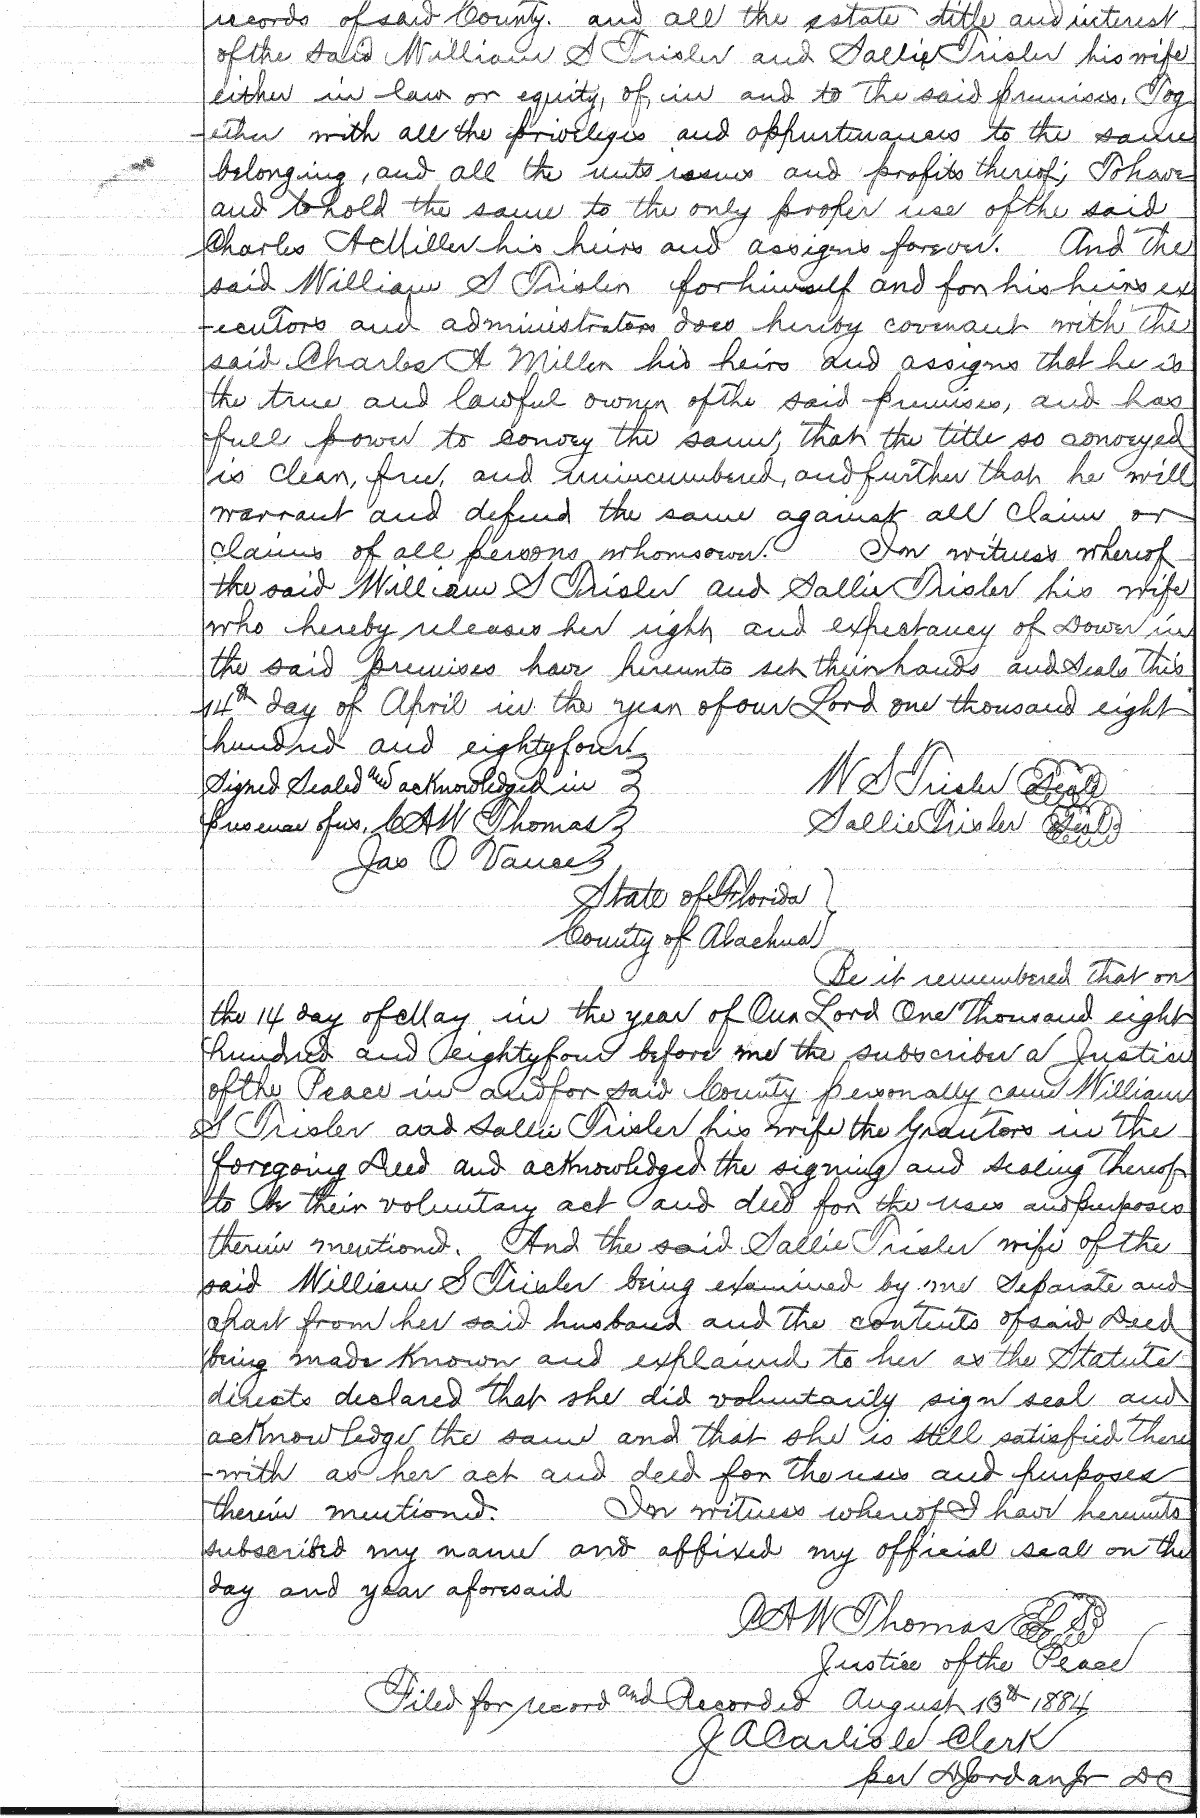 records of said County. and all the estate title and interest
of the said William S Trisler and Sallie Trisler his wife
either in law or equity, of, in and to the said premises. Tog
-ether with all the privileges and appurtenances to the same
belonging, and all the rents issues and profits thereof; To have
and to hold the same to the only proper use of the said
Charles A Miller his heirs and assigns forever. And the
said William S Trisler for himself and for his heirs ex
-ecutors and administrators does hereby covenant with the
said Charles A Miller his heirs and assigns that he is
the true and lawful owner of the said premises, and has
full power to convey the same; that the title so conveyed
is clean, free, and unincumbered, and further that he will
warrant and defend the same against all claim or
claims of all persons whomsoever. In witness whereof
the said William S Trisler and Sallie Trisler his wife
who hereby releases her right and expectancy of Dower in
the said premises have hereunto set their hands and Seals this
14th day of April in the year of our Lord one thousand eight
hundred and eightyfour
Signed Sealed and acknowledged in W S Trisler Seal
presence of us. C A W Thomas Sallie Trisler Seal
Jas O Vance
State of Florida
County of Alachua
Be it remembered that on
the 14 day of May in the year of Our Lord One Thousand eight
hundred and eightyfour before me the subscriber a Justice
of the Peace in and for said County personally came William
S Trisler and Sallie Trisler his wife the Grantors in the
foregoing Deed and acknowledged the signing and sealing thereof
to be their voluntary act and deed for the uses and purposes
therein mentioned. And the said Sallie Trisler wife of the
said William S Trisler being examined by me Separate and
apart from her said husband and the contents of said Deed
being made Known and explained to her as the Statute
directs declared that she did voluntarily sign seal and
acknowledge the same and that she is still satisfied there
-with as her act and deed for the uses and purposes
therein mentioned. In witness whereof I have hereunto
subscribed my name and affixed my official seal on the
day and year aforesaid
C A W Thomas L S
Justice of the Peace
Filed for record and Recorded August 13th 1884
J A Carlisle Clerk
per D Jordan Jr DC